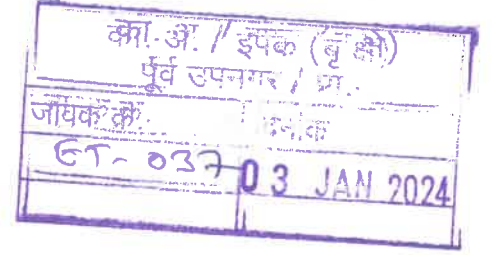 का. अ. / इपक (बृ क्षे)
पूर्व उपनगर / प्रा.
जावक क्र. दिनांक
ET- 037 03 JAN 2024